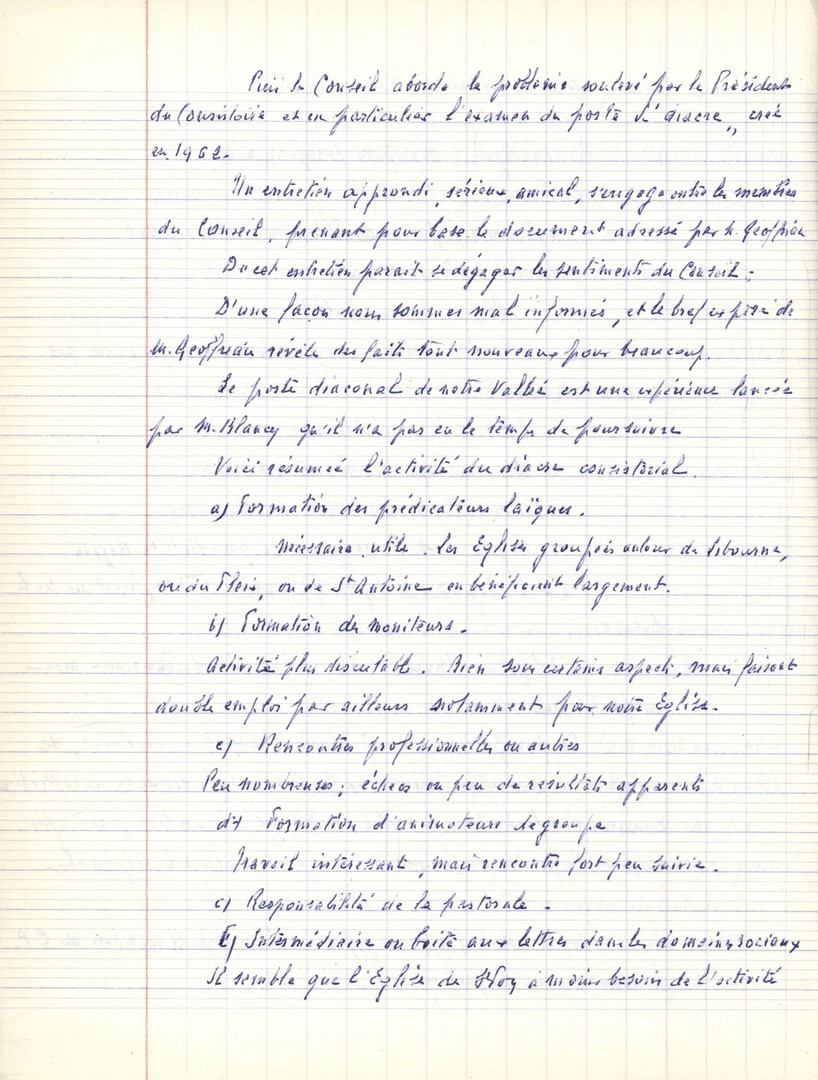 Puis le Conseil aborde le problème soulevé par le Président
du Consistoire et en particulier l'examen du poste de diacre, créé
en 1962.
Un entretien approfondi, sérieux, amical, s'engage entre les membres
du Conseil, prenant pour base le document adressé par M. Geoffriau
De cet entretien parait se dégager les sentiments du Conseil :
D'une façon nous sommes mal informés, et le bref exposé de
M. Geoffriau révèle des faits tout nouveaux pour beaucoup.
Le poste diaconal de notre Vallée est une expérience lancée
par M. Blancy qu'il n'a pas eu le temps de poursuivre
Voici résumée l'activité du diacre consistorial.
a) Formation des prédicateurs laïques.
Nécessaire, utile. Les Eglises groupées autour de Libourne,
ou du Fleix, ou de St Antoine en bénéficient largement.
b) Formation de moniteurs.
Activité plus discutable. Bien sous certains aspects, mais faisant
double emploi par ailleurs notamment pour notre Eglise.
c) Rencontres professionnelles ou autres
Peu nombreuses ; échecs ou peu de résultats apparents
d) Formation d'animateurs de groupe
Travail intéressant, mais rencontre fort peu suivie.
e) Responsabilité de la pastorale.
f) Intermédiaire ou boîte aux lettres dans les domaines sociaux
Il semble que l'Eglise de a moins besoin de l'activité